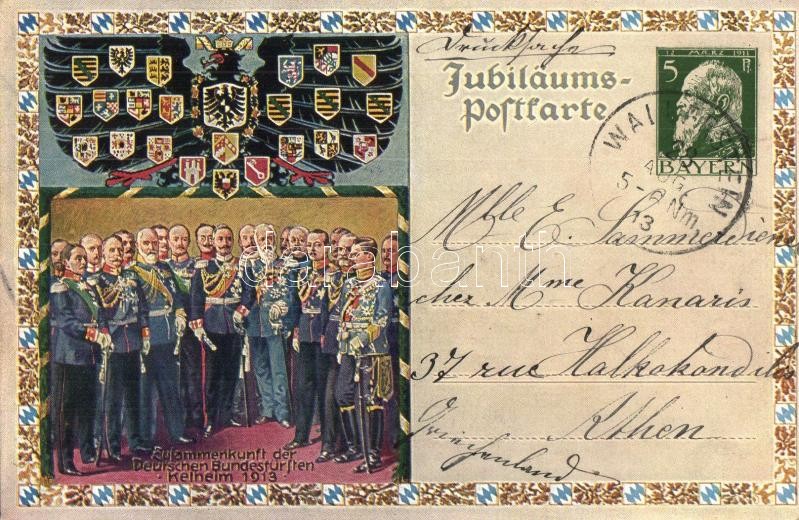 Drucksache
Jubiläums-
Postkarte
12. MÄRZ 1911
5 Pf.
BAYERN
AUG
5-6 Nm
13
Mlle E. Sammerdiene
chez Mme Kanaris
37 rue Halkokondilis
Athen
Griechenland
Zusammenkunft der
Deutschen Bundesfürsten
· Kelheim 1913 ·
darabanth